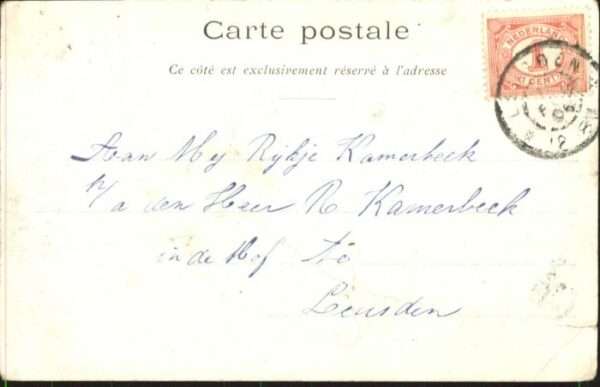 Carte postale
Ce côté est exclusivement réservé à l'adresse
NEDERLAND
1
CENT
Aan Mej Rijkje Kamerbeek
p/a den Heer R Kamerbeek
in de Hof te
Leusden